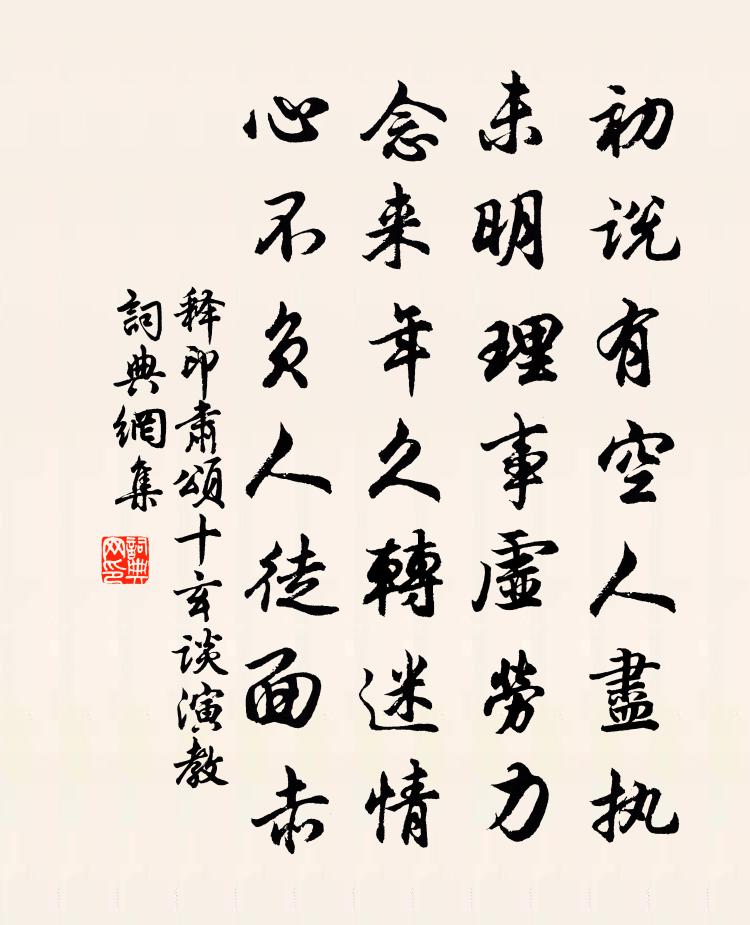 初说有空人盡执
未明理事虛勞力
念来年久轉迷情
心不负人徒面赤
释印肃頌十玄谈演教
詞典網集
詞典
网印